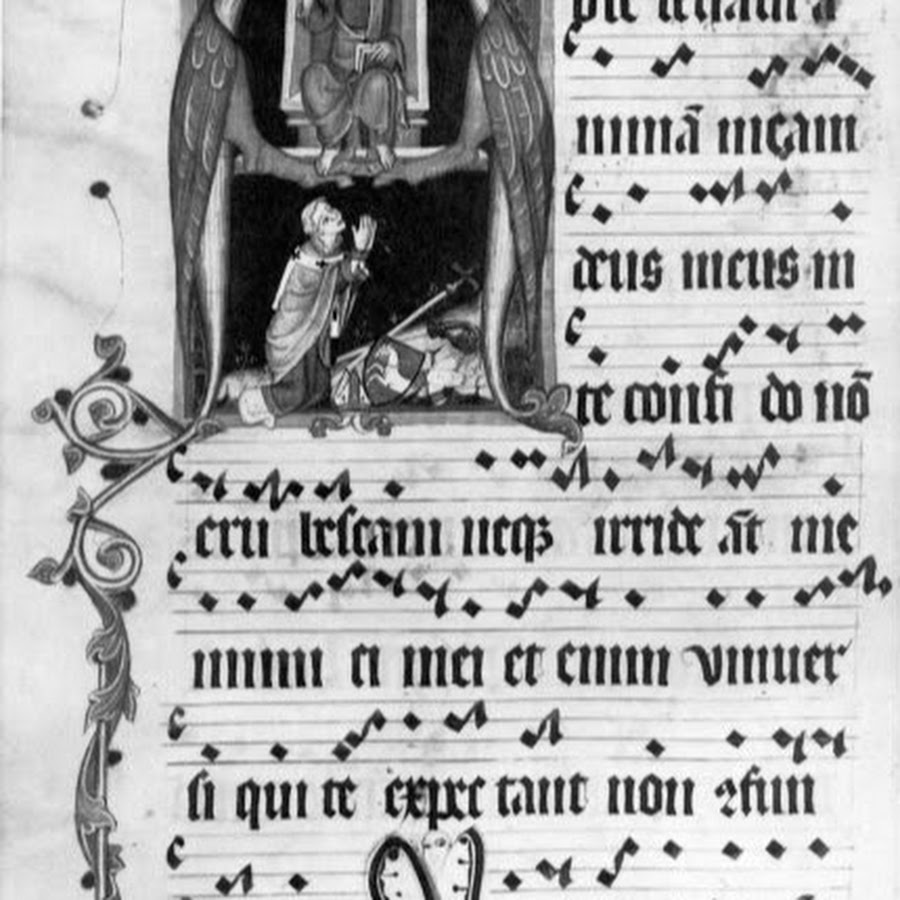 te leuaui a
nimā meam
deus meus in
te confi do nō
eru bescam neqꝫ irride āt me
inimi ci mei et enim vniuer
si qui te expec tant non ꝯfun